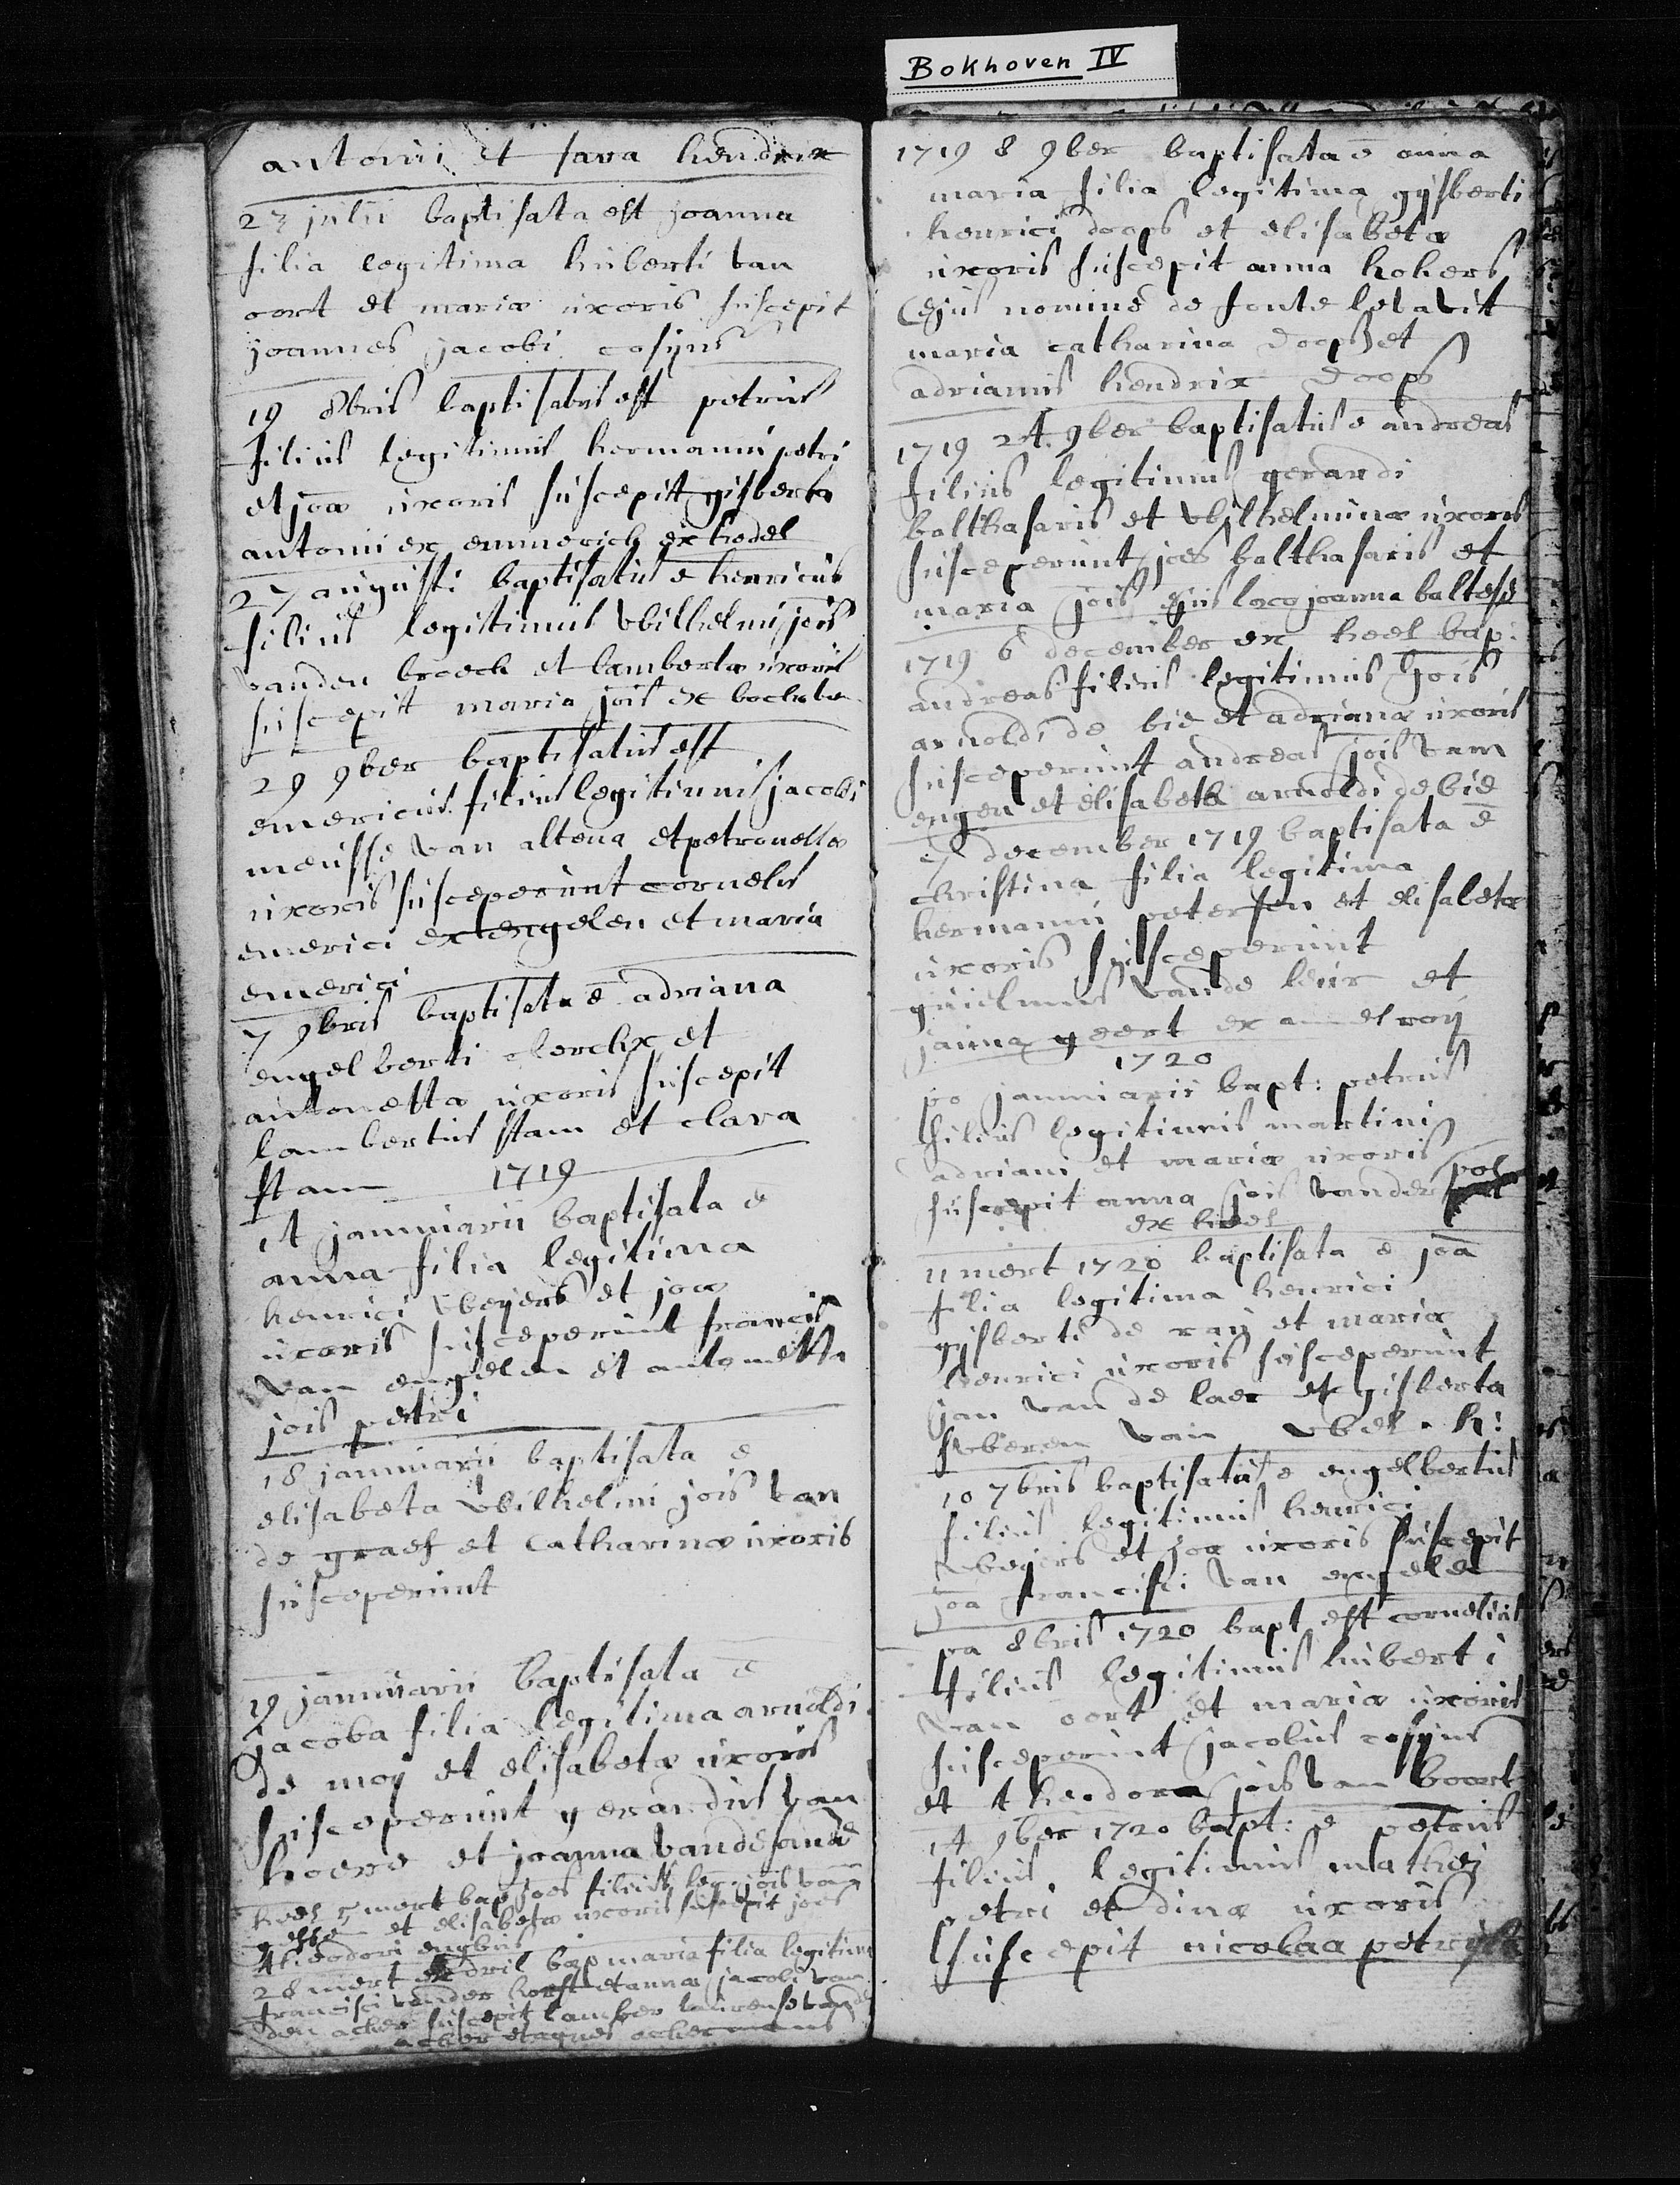 Bokhoven IV
antonii et sara hendrix
23 julii baptisata est joanna
filia legitima huberti van
oort et mariæ uxoris suscepit
joannes jacobi cosijns
19 8bris baptisatus est petrus
filius legitimus hermanni petri
et joæ uxoris suscepit gisberta
antonii ex emmerich ex hedel
27 augusti baptisatus e henricus
filius legitimus wilhelmi jois
vanden broeck et lambertæ uxoris
suscepit maria jois ex
29 9ber baptisatus est
emericus filius legitimus jacobi
meusse van altena et petronellæ
uxoris susceperunt cornelis
emerici ex engelen et maria
emerici
7 9bris baptisata ē adriana
engelberti clerckx et
antonetta uxoris suscepit
lambertus stam et clara
stam 1719
14 jannuarii baptisata ē
anna filia legitima
henrici weijers et joæ
uxoris susceperunt francis
van engelen et antonetta
jois petri
18 jannuarii baptisata e
elisabeta wilhelmi jois van
de graef et catharinæ uxoris
susceperunt
19 jannuarii baptisata ē
jacoba filia legitima arnoldi
de moij et elisabetæ uxoris
susceperunt gerardus van
hoere et joanna vande sande
heel 5 mert bap joes filius leg: jois van
et elisabetæ uxoris suscepit joes
theodori
28 mert ex dril bap maria filia legitima
francisci vander horst et annæ jacobi van
den acker suscepit lamber laurense van de
acker et agnes ackermans
1719 8 9ber baptisata ē anna
maria filia legitima gijsberti
henrici doops et elisabetæ
uxoris suscepit anna hokers
ejus nomine de fonte levavit
maria catharina doops et
adrianus hendrix doops
1719 24 9ber baptisatus e andreas
filius legitimus gerardi
balthasaris et wilhelminæ uxoris
susceperunt joes balthasaris et
maria jois ejus loco joanna baltese
1719 6 december ex heel bap:
andreas filius legitimus jois
arnoldi de bie et adrianæ uxoris
susceperunt andreas jois van
engen et elisabeth arnoldi de bie
7 december 1719 baptisata ē
christina filia legitima
hermanni petersen et elisabetæ
uxoris susceperunt
guielmus vande leur et
janna geert ex amelroij
1720
po jannuarii bapt: petrus
filius legitimus martini
adriani et mariæ uxoris
suscepit anna jois vander pol
ex heel
11 mert 1720 baptisata e joā
filia legitima henrici
gijsberti de raij et mariæ
henrici uxoris susceperunt
jan van de laer et gisberta
van wel
10 7bris baptisatus e engelbertus
filius legitimus henrici
weijers et joæ uxoris suscepit
joā francisci van engelen
pa 8bris 1720 bapt est cornelius
filius legitimus huberti
van oort et mariæ uxoris
susceperunt jacobus cosijns
et theodora jois van boort
14 9ber 1720 bapt: ē petrus
filius legitimus mathei
petri et dinæ uxoris
suscepit nicolaa petri